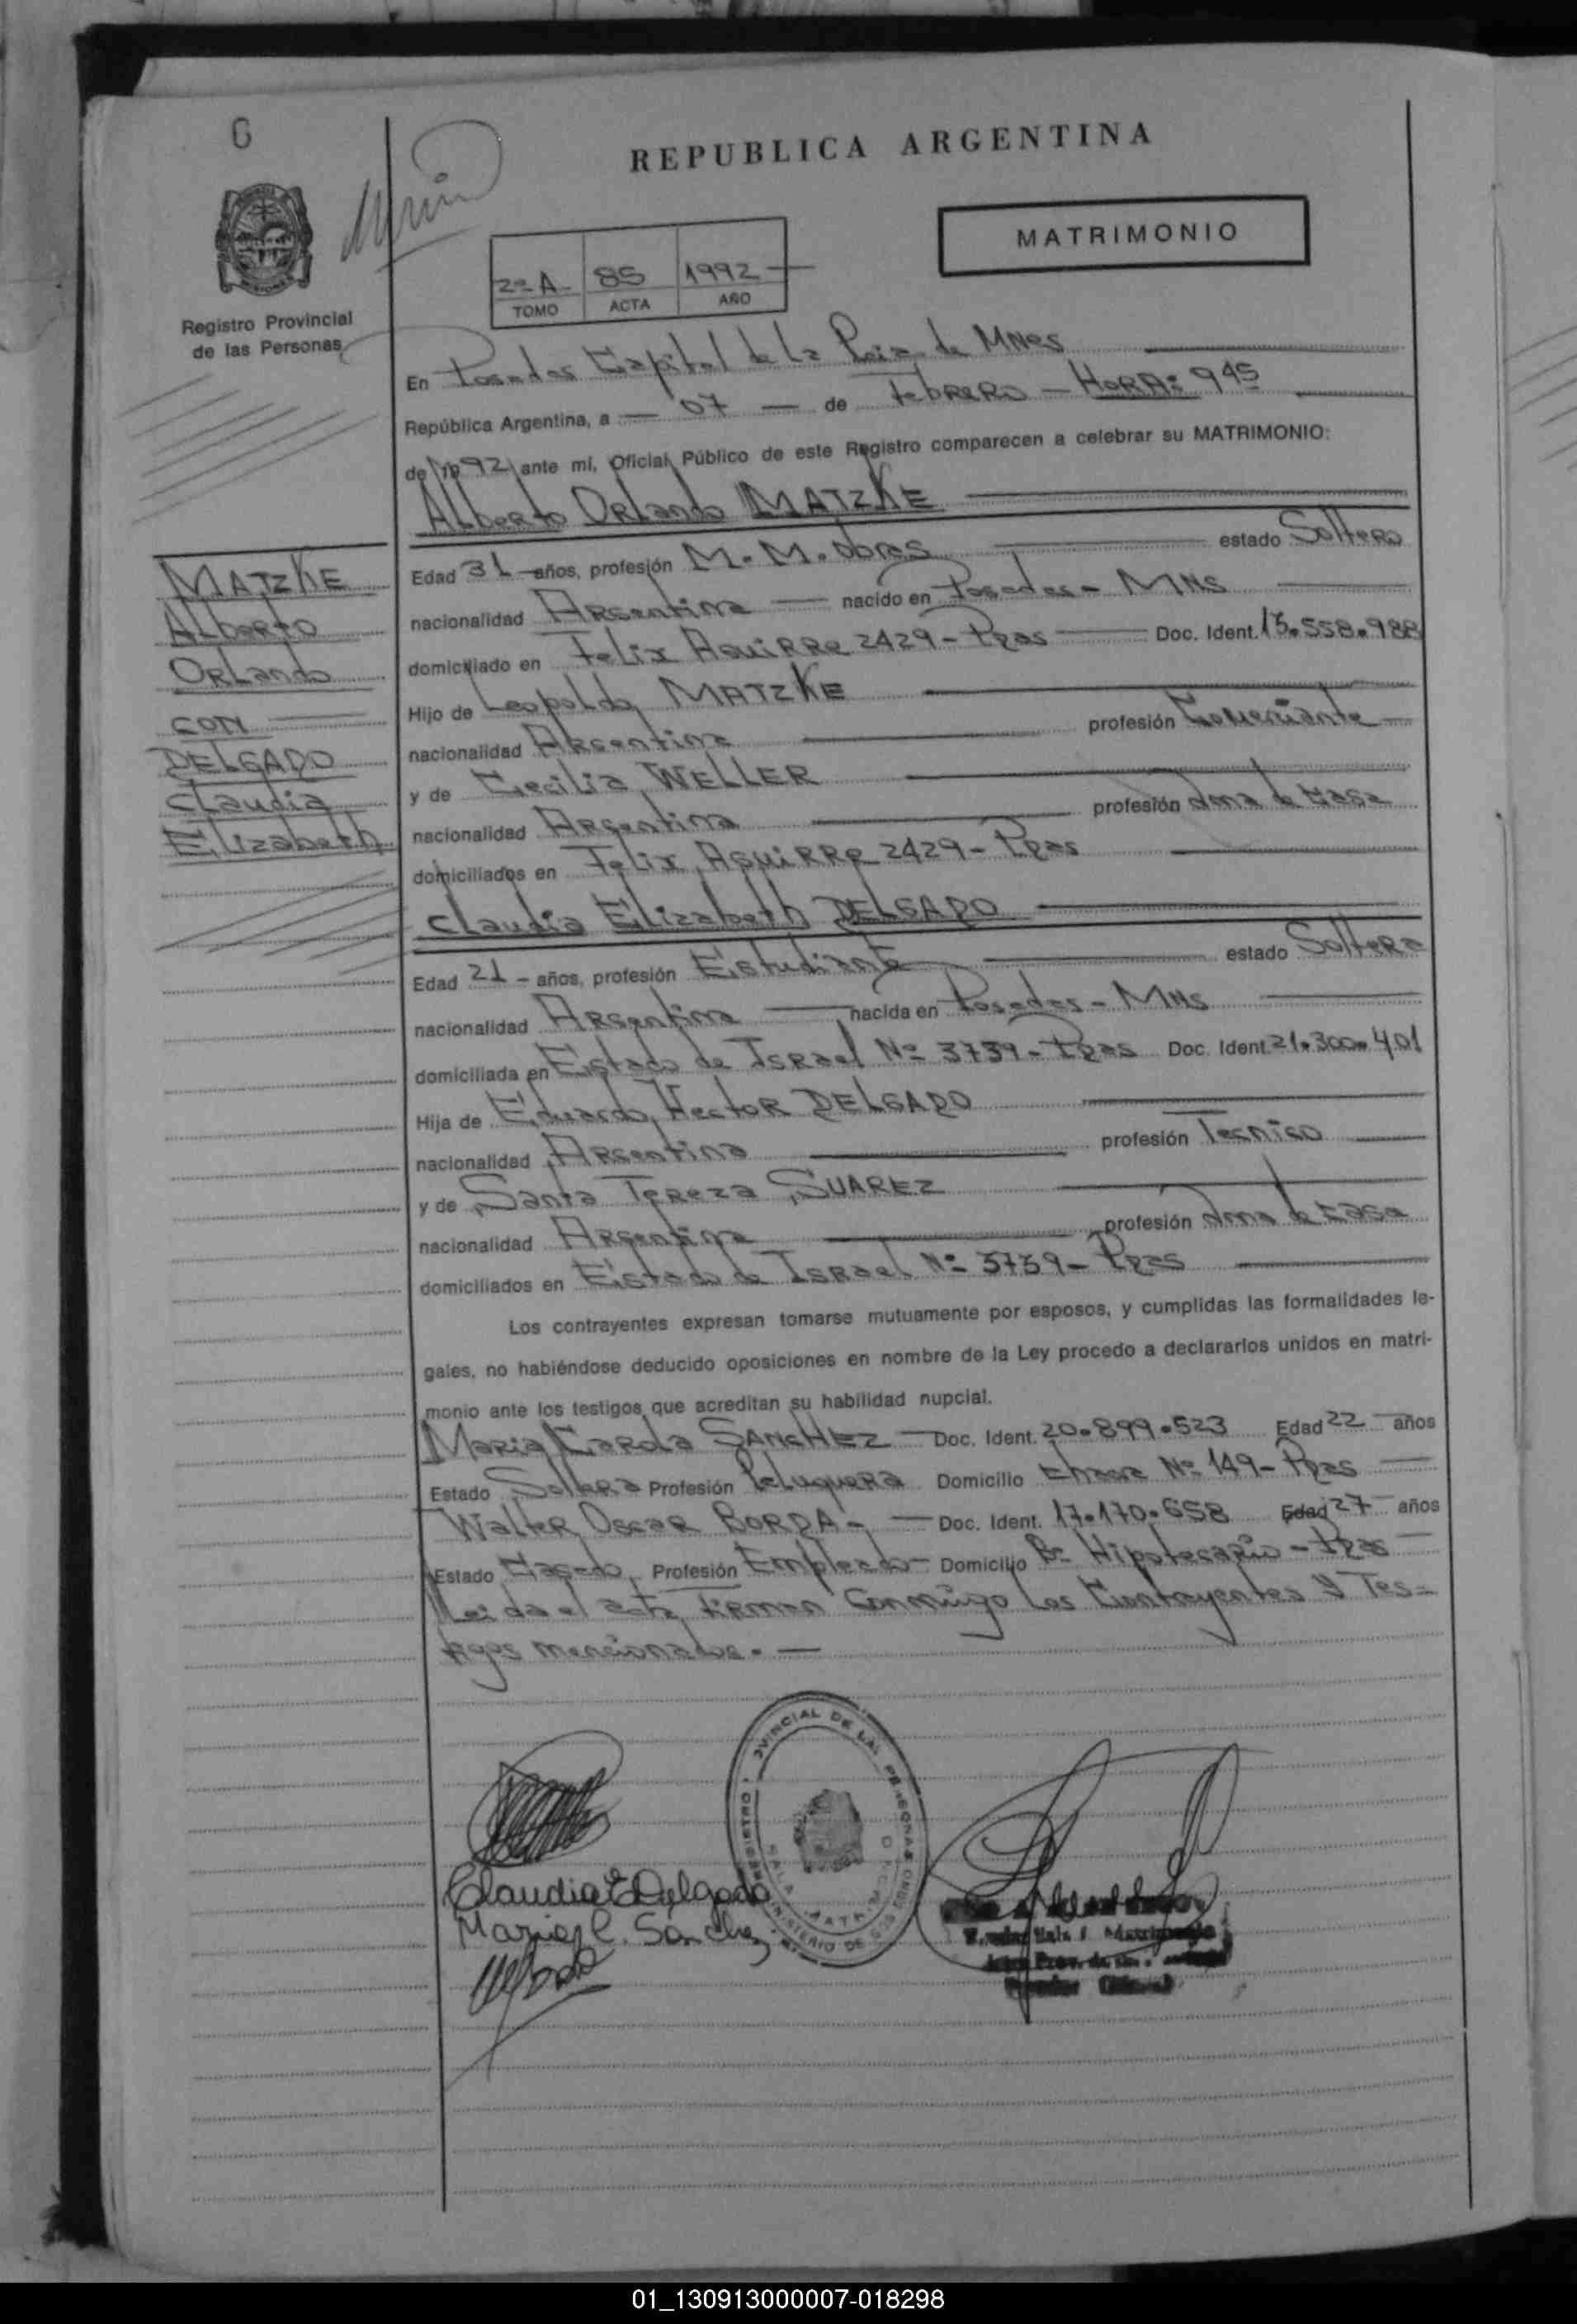 REPUBLICA ARGENTINA
MATRIMONIO
2ª A- 85 1992
TOMO ACTA AÑO
Registro Provincial
de las Personas
En Posadas Capital de la Pcia. de MNES
República Argentina, a — 07 — de Febrero — HORA: 9 45
de 1992 ante mí, Oficial Público de este Registro comparecen a celebrar su MATRIMONIO:
Alberto Orlando MATZKE
Edad 31 años, profesión M. M. Obras estado Soltero
nacionalidad Argentina nacido en Posadas - MNS
domiciliado en Felix Aguirre 2429 - Pdas Doc. Ident. 13.558.988
Hijo de Leopoldo MATZKE
nacionalidad Argentina profesión Comerciante
y de Cecilia WELLER
nacionalidad Argentina profesión Ama de Casa
domiciliados en Felix Aguirre 2429 - Pdas
MATZKE
Alberto
Orlando
CON
DELGADO
Claudia
Elizabeth
Claudia Elizabeth DELGADO
Edad 21 - años, profesión Estudiante estado Soltera
nacionalidad Argentina nacida en Posadas - MNS
domiciliada en Estado de Israel Nº 3739 - Pdas Doc. Ident. 21.300.401
Hija de Eduardo Hector DELGADO
nacionalidad Argentina profesión Tecnico
y de Santa Tereza SUAREZ
nacionalidad Argentina profesión Ama de Casa
domiciliados en Estado de Israel Nº 3739 - Pdas
Los contrayentes expresan tomarse mutuamente por esposos, y cumplidas las formalidades le-
gales, no habiéndose deducido oposiciones en nombre de la Ley procedo a declararlos unidos en matri-
monio ante los testigos que acreditan su habilidad nupcial.
Maria Carola SANCHEZ — Doc. Ident. 20.899.523 Edad 22 años
Estado Soltera Profesión Peluquera Domicilio Chacra Nº 149 - Pdas
Walter Oscar BORDA - Doc. Ident. 17.170.658 Edad 27 años
Estado Casado Profesión Empleado - Domicilio Bº Hipotecario - Pdas
Leida el acta Firman Conmigo Los Contrayentes y Tes=
tigos mencionados. —
Claudia E Delgado
Maria C. Sánchez
01_130913000007-018298